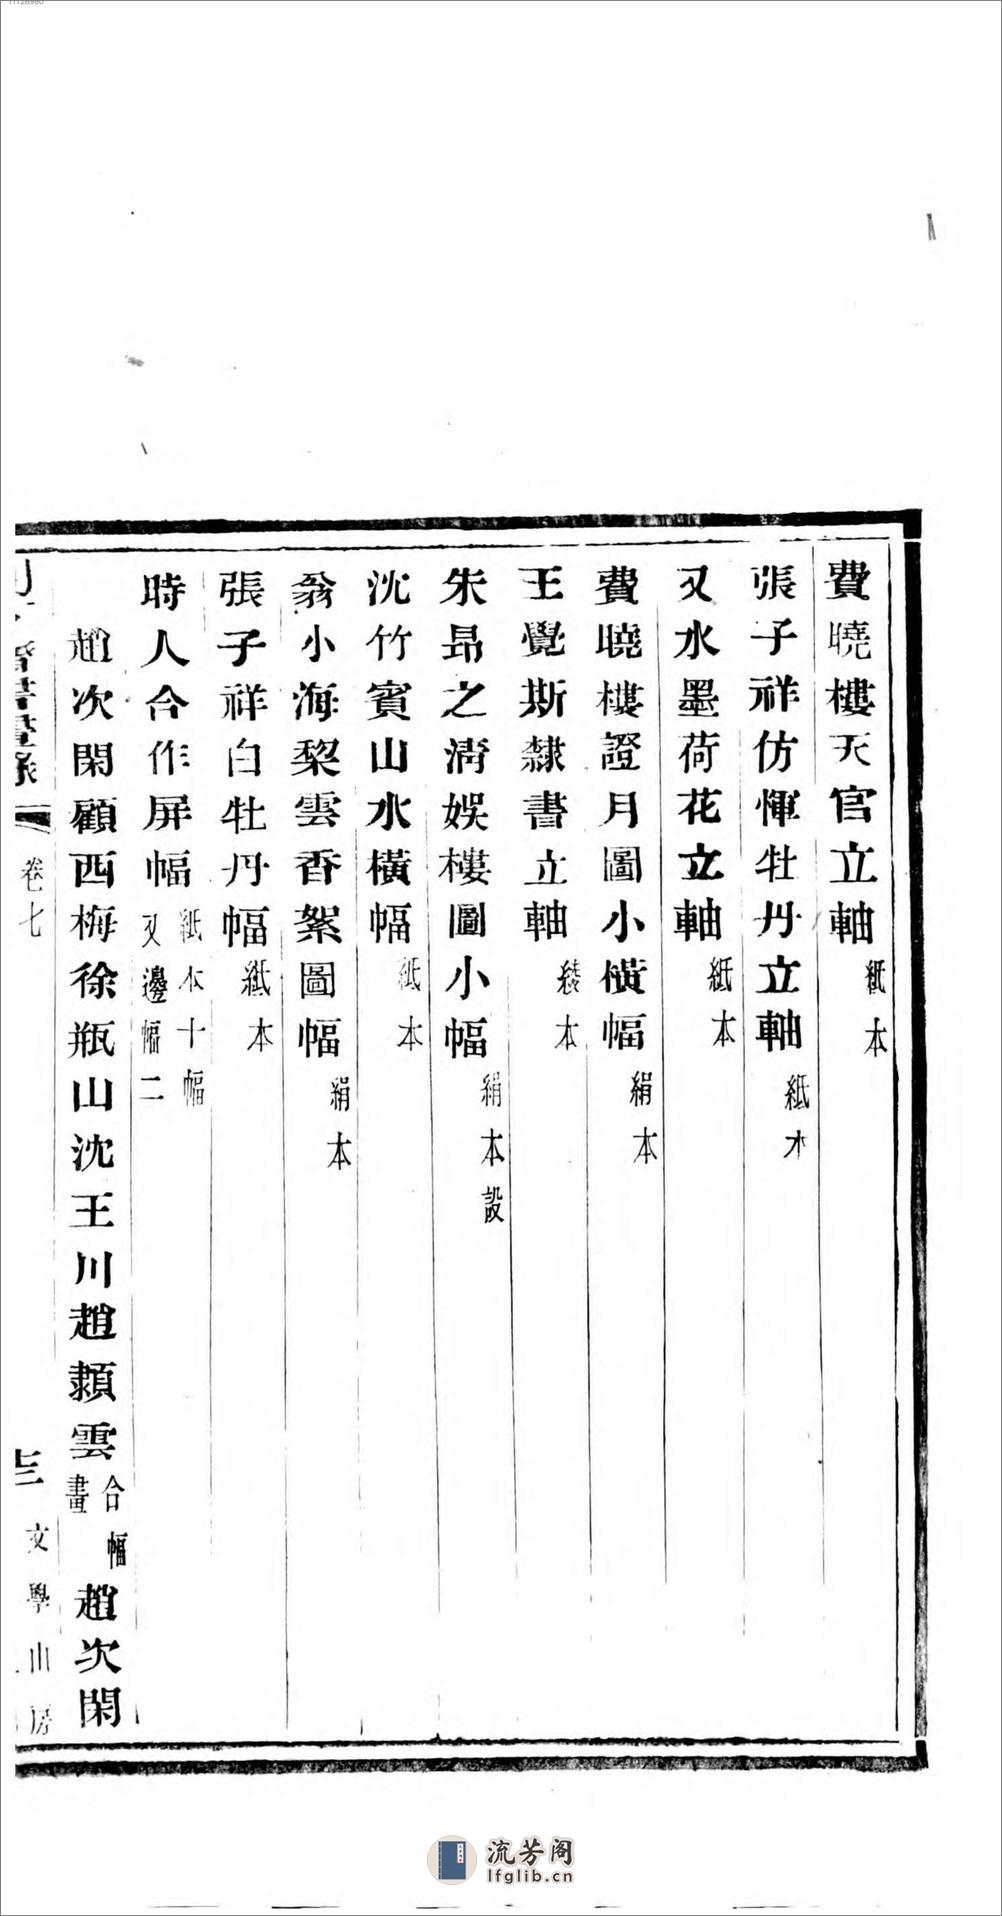 費曉樓天官立軸紙本
張子祥仿惲牡丹立軸紙本
又水墨荷花立軸紙本
費曉樓證月圖小橫幅絹本
王覺斯隸書立軸綾本
朱昂之淸娛樓圖小幅絹本設
沈竹賓山水橫幅紙本
翁小海梨雲香絮圖幅絹本
張子祥白牡丹幅紙本
時人合作屏幅紙本十幅又邊幅二
趙次閑顧西梅徐瓶山沈王川趙𩔖雲合幅畫趙次閑
書畫錄
卷七
十三
文學山房
流芳阁
lfglib.cn